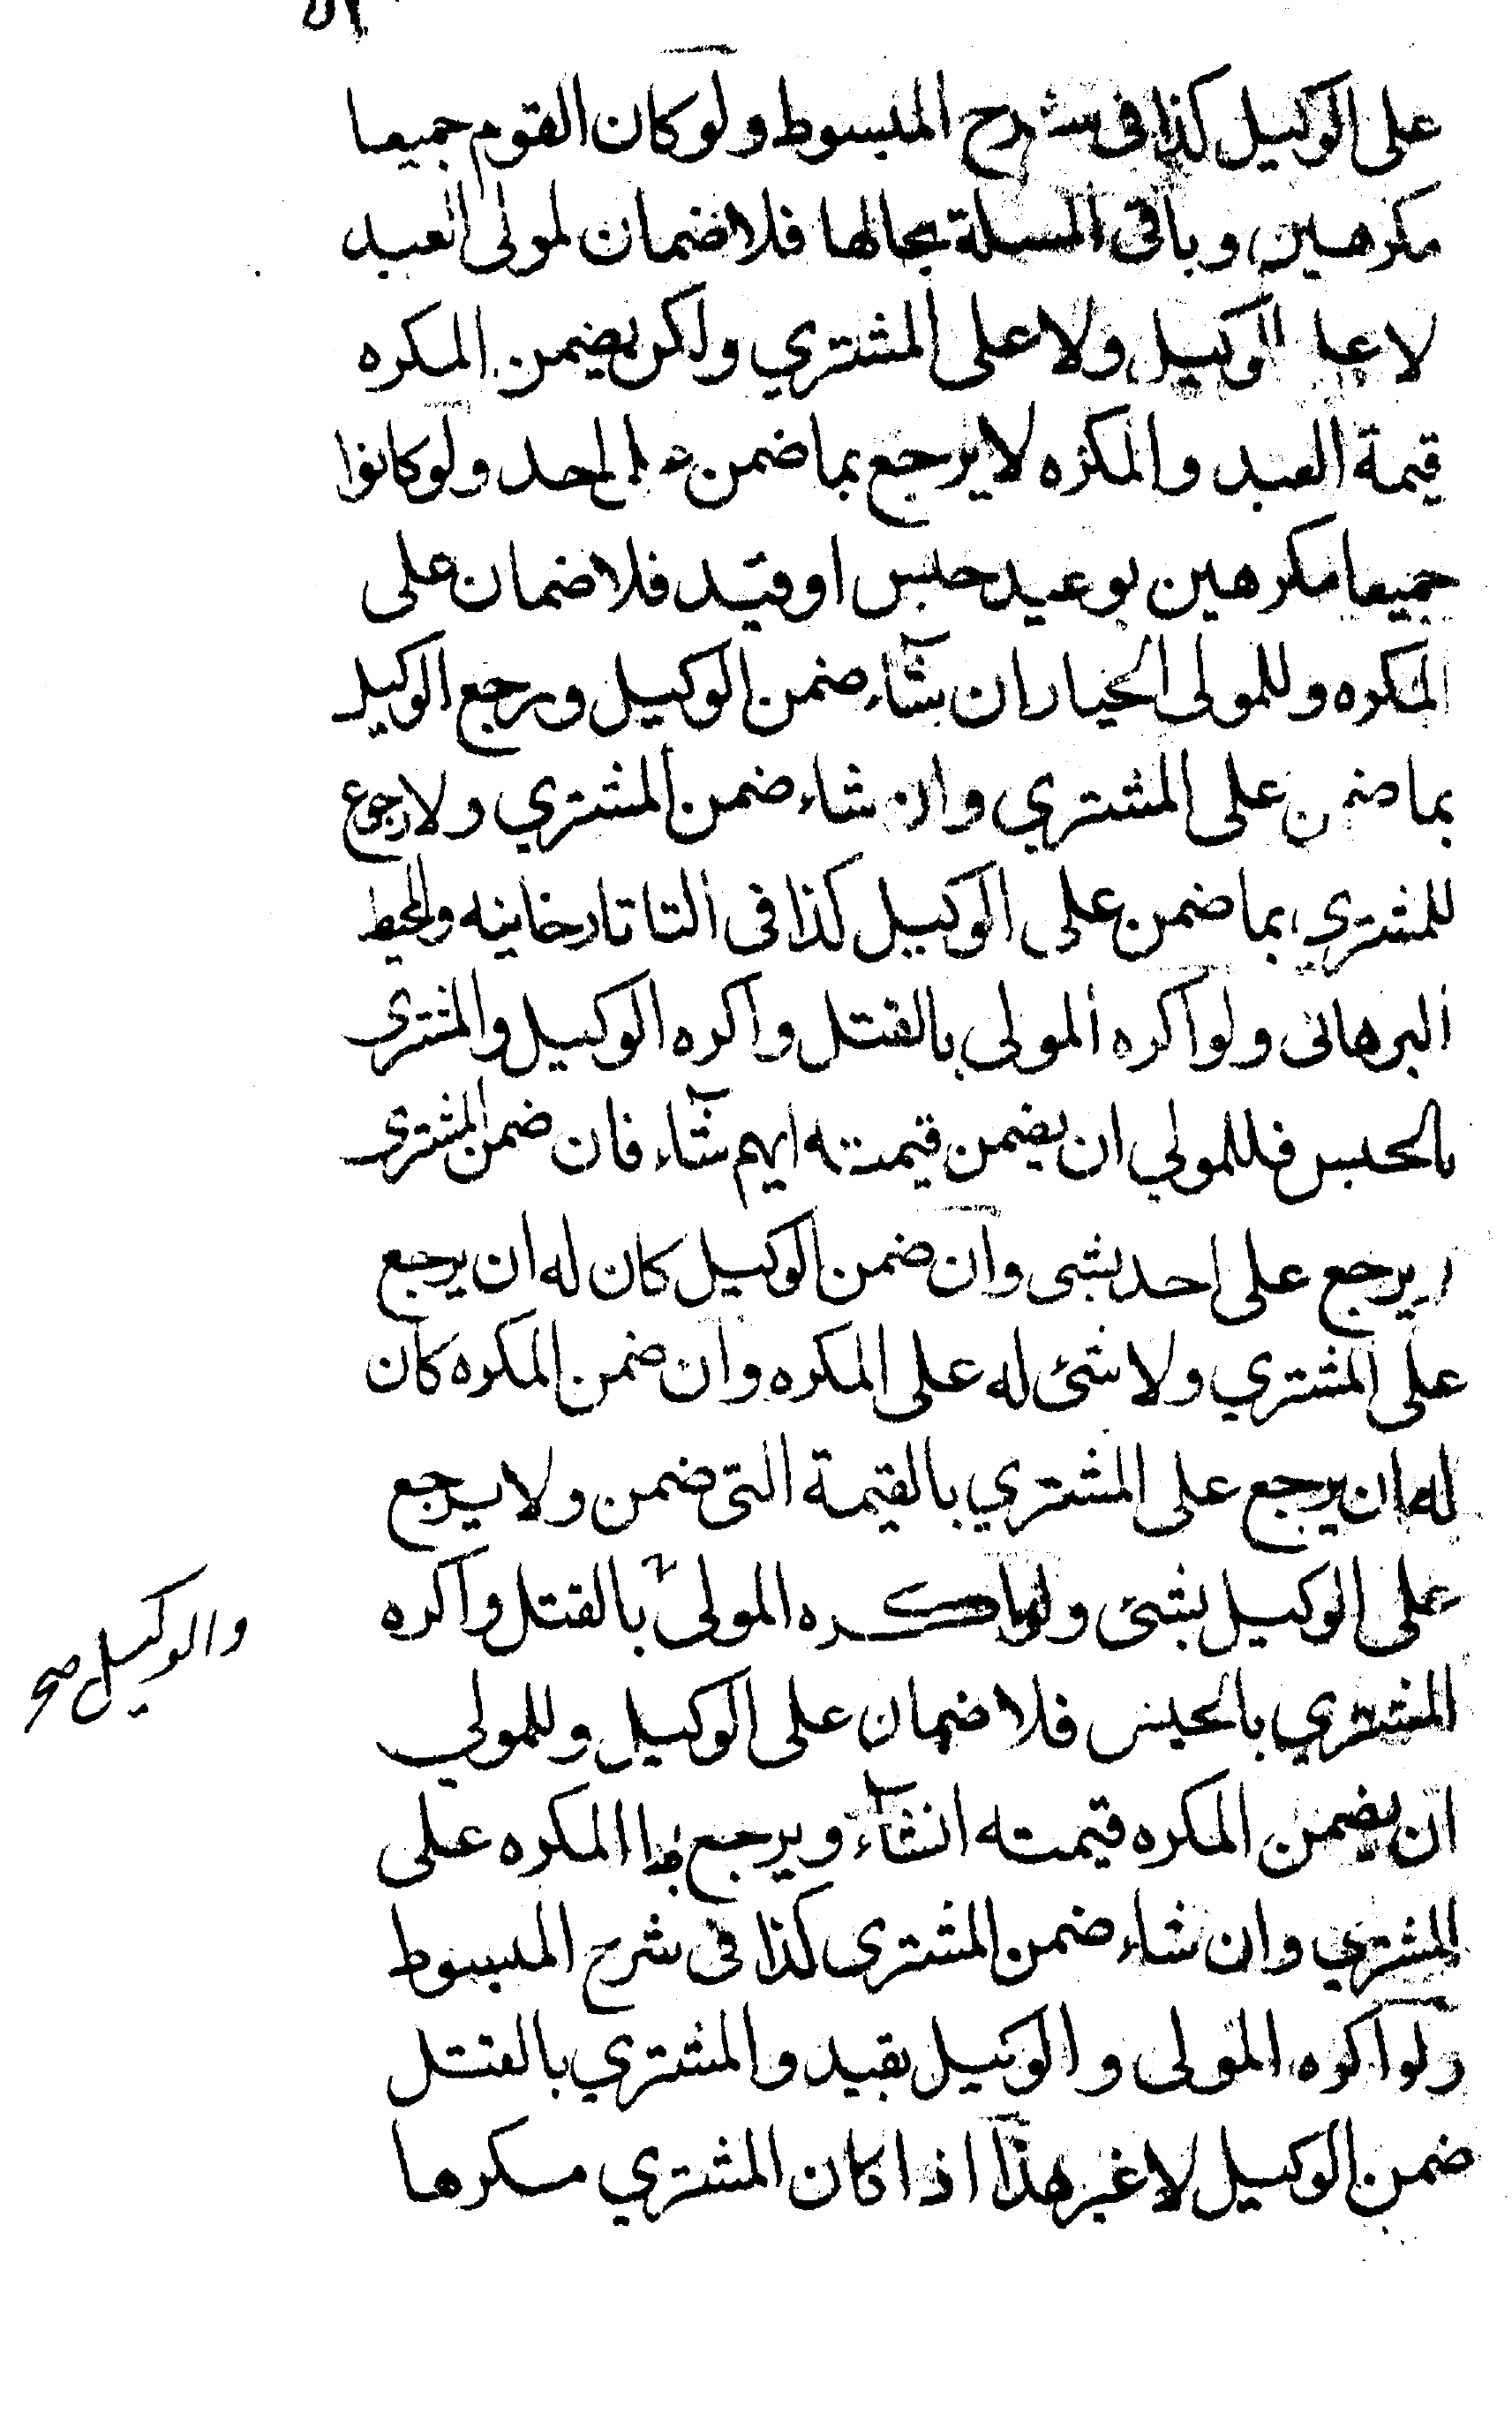 على الوكيل كذا في شرح المبسوط ولو كان القوم جميعا
مكرهين وباقى المسلة بحالها فلا ضمان لمولى العبد
لا على الوكيل ولا على المشتري ولكن يضمن المكره
قيمة العبد والمكره لا يرجع بما ضمن على احد ولو كانوا
جميعا مكرهين بوعيد حبس او قيد فلا ضمان على
المكره وللمولى الخيار ان شآء ضمن الوكيل ورجع الوكيل
بما ضمن على المشتري وان شاء ضمن المشتري ولا رجوع
للمشتري بما ضمن على الوكيل كذا فى التاتارخانيه والمحيط
البرهانى ولو اكره المولى بالقتل واكره الوكيل والمشترى
بالحبس فللمولي ان يضمن قيمته ايهم شآء فان ضمن المشترى
يرجع على احد بشى وان ضمن الوكيل كان له ان يرجع
على المشتري ولا شئ له على المكره وان ضمن المكره كان
له ان يرجع على المشتري بالقيمة التى ضمن ولا يرجع
على الوكيل بشئ ولو اكره المولى بالقتل واكره
والوكيل صح
المشتري بالحبس فلا ضمان على الوكيل وللمولي
ان يضمن المكره قيمته انشآء ويرجع بها المكره على
المشتري وان شاء ضمن المشترى كذا فى شرح المبسوط
ولو اكره المولى والوكيل بقيد والمشتري بالقتل
ضمن الوكيل لا غير هذا اذا كان المشتري مكرها